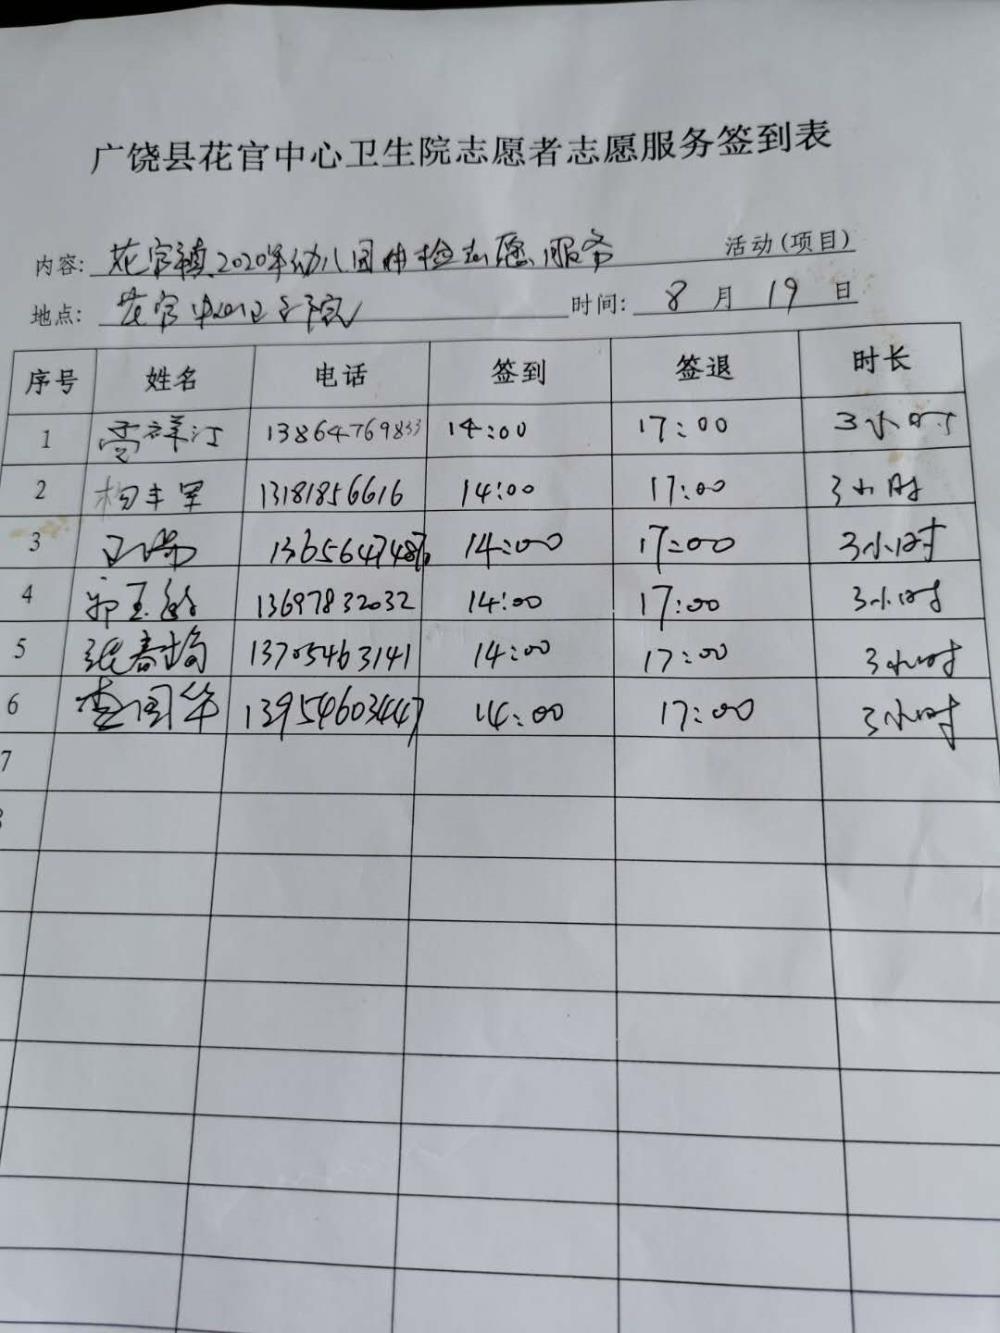 广饶县花官中心卫生院志愿者志愿服务签到表
内容: 花官镇2020年幼儿园体检志愿服务 活动(项目)
地点: 花官中心卫生院 时间: 8 月 19 日
序号 姓名 电话 签到 签退 时长
1 13864769833 14:00 17:00 3小时
2 13181856616 14:00 17:00 3小时
3 14:00 17:00 3小时
4 13697832032 14:00 17:00 3小时
5 张春梅 13705463141 14:00 17:00 3小时
6 李国华 13954603447 14:00 17:00 3小时
7